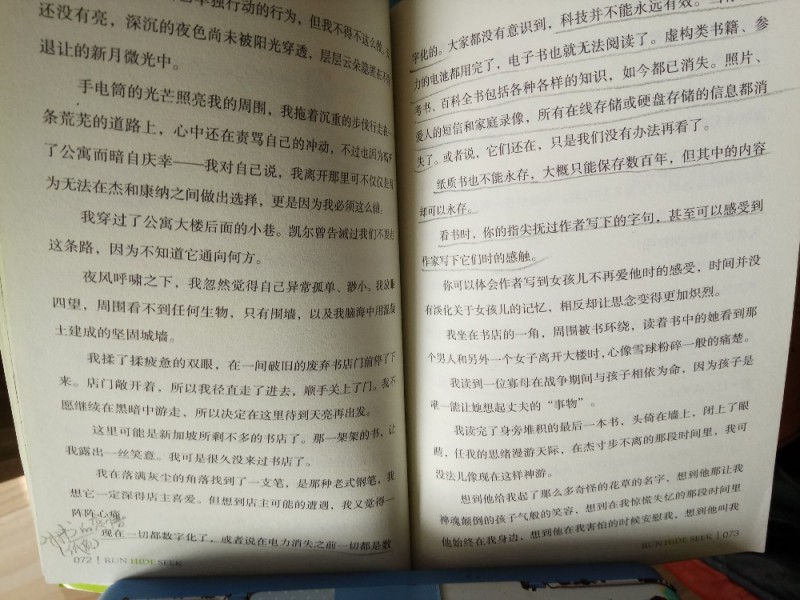 独行动的行为，但我不得不这么做。
还没有亮，深沉的夜色尚未被阳光穿透，层层云朵隐匿在不
退让的新月微光中。
手电筒的光芒照亮我的周围，我拖着沉重的步伐行走在一
条荒芜的道路上，心中还在责骂自己的冲动，不过也因为离开
了公寓而暗自庆幸——我对自己说，我离开那里可不仅仅是因
为无法在杰和康纳之间做出选择，更是因为我必须这么做。
我穿过了公寓大楼后面的小巷。凯尔曾告诫过我们不要走
这条路，因为不知道它通向何方。
夜风呼啸之下，我忽然觉得自己异常孤单、渺小。我放眼
四望，周围看不到任何生物，只有围墙，以及我脑海中用混凝
土建成的坚固城墙。
我揉了揉疲惫的双眼，在一间破旧的废弃书店门前停了下
来。店门敞开着，所以我径直走了进去，顺手关上了门。我不
愿继续在黑暗中游走，所以决定在这里待到天亮再出发。
这里可能是新加坡所剩不多的书店了。那一架架的书，让
我露出一丝笑意。我可是很久没来过书店了。
我在落满灰尘的角落找到了一支笔，是那种老式钢笔，我
想它一定深得店主喜爱。但想到店主可能的遭遇，我又觉得一
阵阵心痛。
现在一切都数字化了，或者说在电力消失之前一切都是数
072 | RUN HIDE SEEK
字化的。大家都没有意识到，科技并不能永远有效。
力的电池都用完了，电子书也就无法阅读了。虚构类书籍、参
考书、百科全书包括各种各样的知识，如今都已消失。照片、
爱人的短信和家庭录像，所有在线存储或硬盘存储的信息都消
失了。或者说，它们还在，只是我们没有办法再看了。
纸质书也不能永存，大概只能保存数百年，但其中的内容
却可以永存。
看书时，你的指尖抚过作者写下的字句，甚至可以感受到
作家写下它们时的感触。
你可以体会作者写到女孩儿不再爱他时的感受，时间并没
有淡化关于女孩儿的记忆，相反却让思念变得更加炽烈。
我坐在书店的一角，周围被书环绕，读着书中的她看到那
个男人和另外一个女子离开大楼时，心像雪球粉碎一般的痛楚。
我读到一位寡母在战争期间与孩子相依为命，因为孩子是
唯一能让她想起丈夫的“事物”。
我读完了身旁堆积的最后一本书，头倚在墙上，闭上了眼
睛，任我的思绪漫游天际，在杰寸步不离的那段时间里，我可
没法儿像现在这样神游。
想到他给我起了那么多奇怪的花草的名字，想到他那让我
神魂颠倒的孩子气般的笑容，想到在我惊慌失忆的那段时间里
他始终在我身边，想到他在我害怕的时候安慰我，想到他叫我
RUN HIDE SEEK | 073